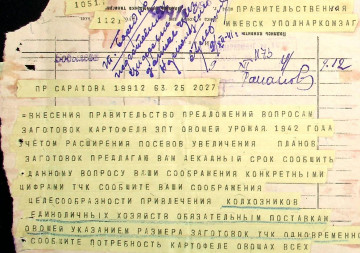 1051
112
ПРАВИТЕЛЬСТВЕННАЯ
ИЖЕВСК УПОЛНАРКОМЗАГ
N173
4.12
ПР САРАТОВА 19912 63 25 2027
=ВНЕСЕНИЯ ПРАВИТЕЛЬСТВО ПРЕДЛОЖЕНИЙ ВОПРОСАМ
ЗАГОТОВОК КАРТОФЕЛЯ ЗПТ ОВОЩЕЙ УРОЖАЯ 1942 ГОДА
УЧЁТОМ РАСШИРЕНИЯ ПОСЕВОВ УВЕЛИЧЕНИЯ ПЛАНОВ
ЗАГОТОВОК ПРЕДЛАГАЮ ВАМ ДЕКАДНЫЙ СРОК СООБЩИТЬ
ДАННОМУ ВОПРОСУ ВАШИ СООБРАЖЕНИЯ КОНКРЕТНЫМИ
ЦИФРАМИ ТЧК СООБЩИТЕ ВАШИ СООБРАЖЕНИЯ
ЦЕЛЕСООБРАЗНОСТИ ПРИВЛЕЧЕНИЯ КОЛХОЗНИКОВ
ЕДИНОЛИЧНЫХ ХОЗЯЙСТВ ОБЯЗАТЕЛЬНЫМ ПОСТАВКАМ
ОВОЩЕЙ УКАЗАНИЕМ РАЗМЕРА ЗАГОТОВОК ТЧК ОДНОВРЕМЕННО
СООБЩИТЕ ПОТРЕБНОСТЬ КАРТОФЕЛЕ ОВОЩАХ ВСЕХ